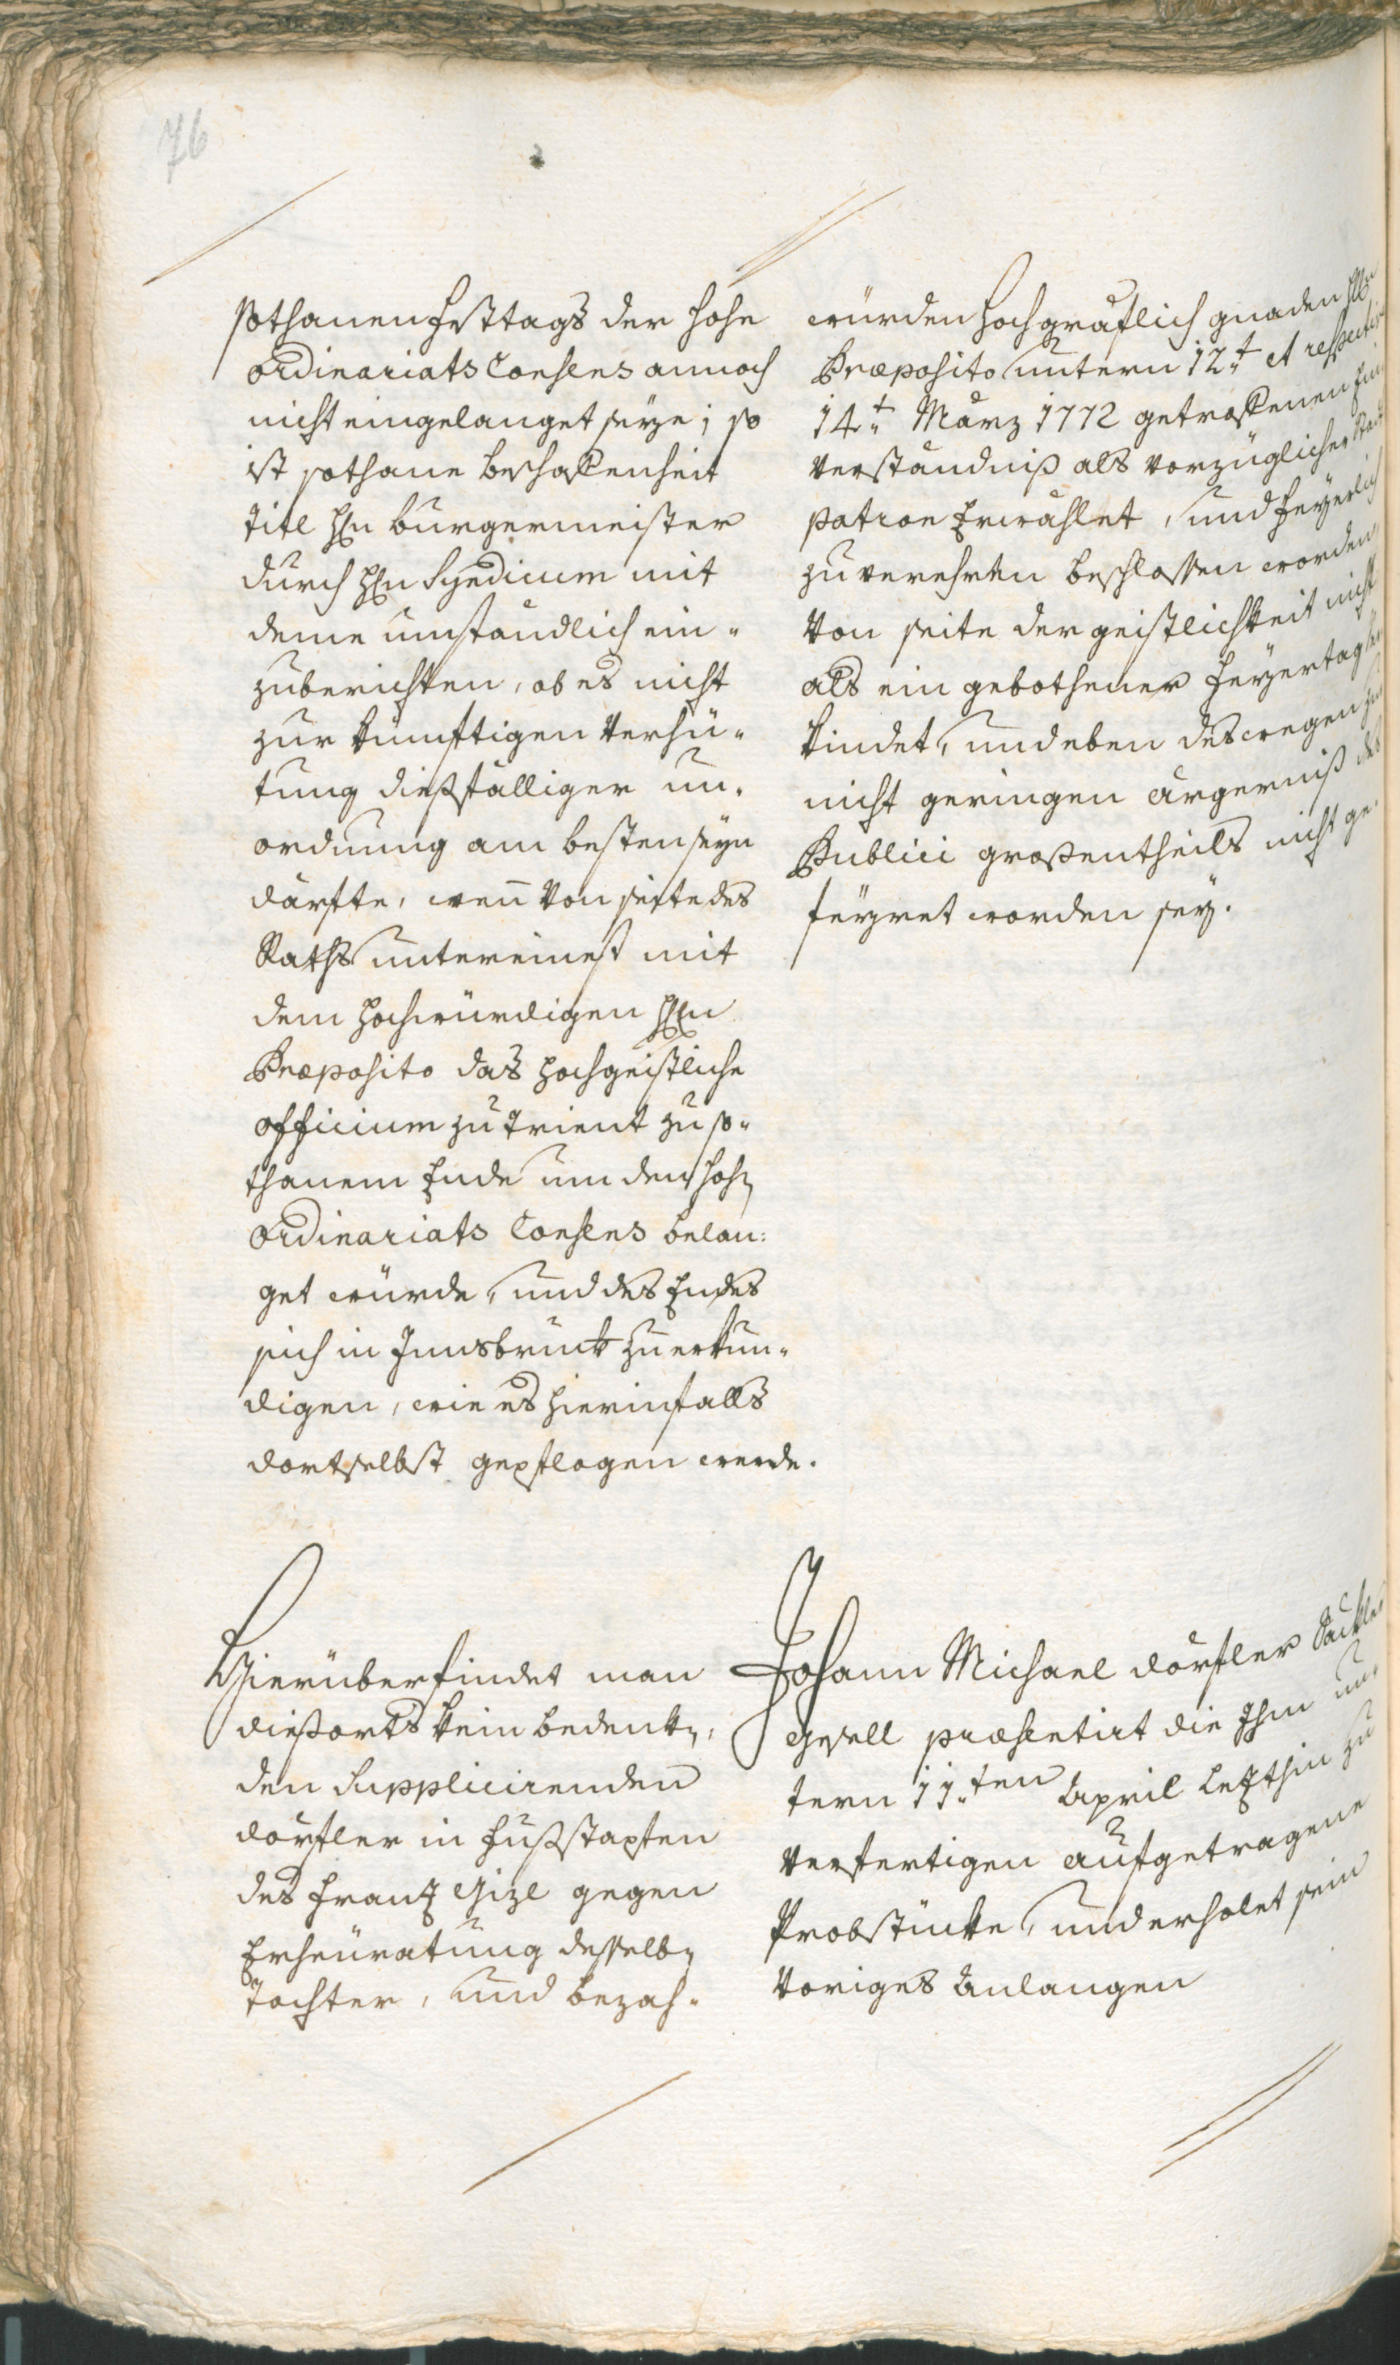 76
sothanen Festtags der hohe
Ordinariats Consens annoch
nicht eingelanget seye; so
ist sothane Beschaffenheit
titl Hn Burgermeister
durch Hn Syndicum mit
deme umständlich ein-
zuberichten, ob es nicht
zur künftigen Verhü-
tung dießfälliger un-
ordnung am besten seyn
därfte, wen von seite des
Raths untereinest mit
dem hochwürdigen Hn
Præposito das hochgeistliche
officium zu Trient zu so-
thanem Ende um den hohen
Ordinariats Consens belan:
get würde, und des Endes
sich in Innsbruck zu erkun-
digen, wie es hierinfalls
dortselbst gepflogen werde.
würden hochgräflich gnaden Hn
Præposito untern 12.t et respective
14.t März 1772 getroffenen Ein
verständniß als vorzüglicher Stadt
patron Erwählet, und feyerlich
zu verehren beschlossen worden,
von seite der geistlichkeit nicht
als ein gebothener feyertag ver
kündet, und eben deswegen zu
nicht geringen ärgerniß des
Publici großentheils nicht ge-
feyret worden sey.
Hierüber findet man
diesorts kein bedenken,
den Supplicirenden
dörfler in fußstapfen
des Franz Gizl gegen
Erheüratung desselben
Tochter, und bezah-
Johann Michael dörfler Säckler
gesell præsentirt die Ihm un-
tern 11.ten April letzthin zu
verfertigen aufgetragene
Probstücke, und erholet sein
voriges Anlangen